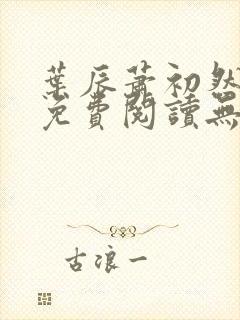 葉辰蕭初然
免費閱讀無
古浪一